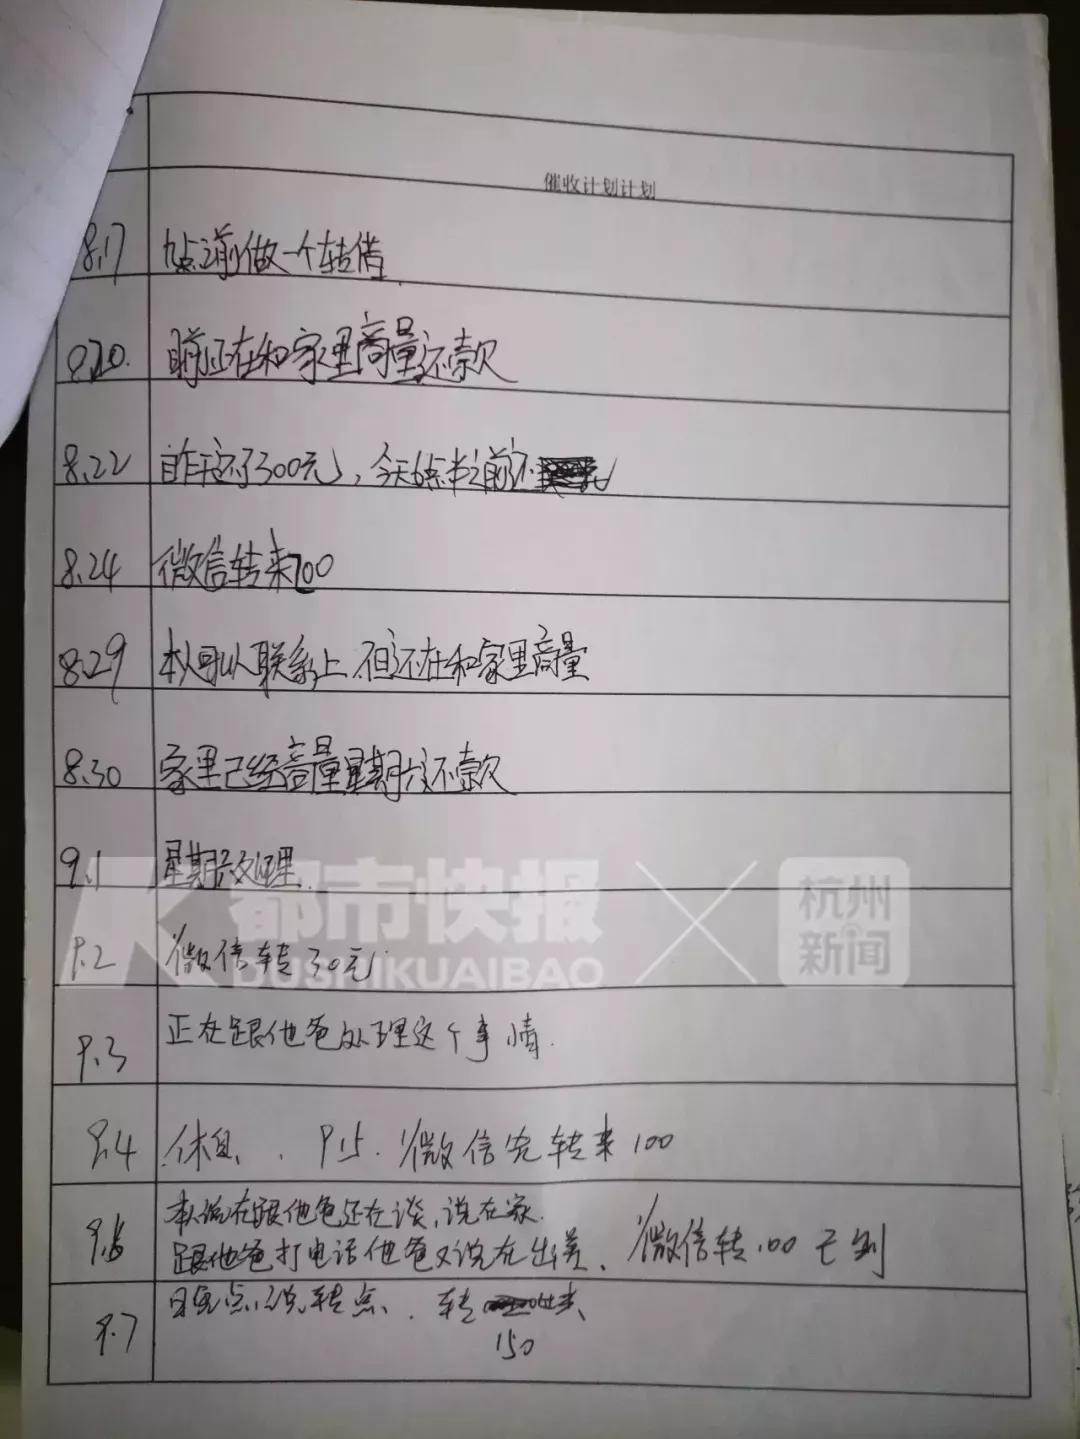 催收计划计划
8.17 九点之前做一个转借
8.20. 目前正在和家里商量还款
8.22 昨天还了300元，今天6点半之前还
8.24 微信转来700
8.29 本人可以联系上，但还在和家里商量
8.30 家里已经商量星期六还款
9.1 星期六处理
都市快报
杭州
新闻
9.2 微信转30元
DUSHIKUAIBAO
9.3 正在跟他爸处理这个事情.
9.4 休息、. 9.5. 微信先转来100
9.6 本人说在跟他爸还在谈,说在家.
跟他爸打电话他爸又说在出差、 微信转100已到
9.7 转
150